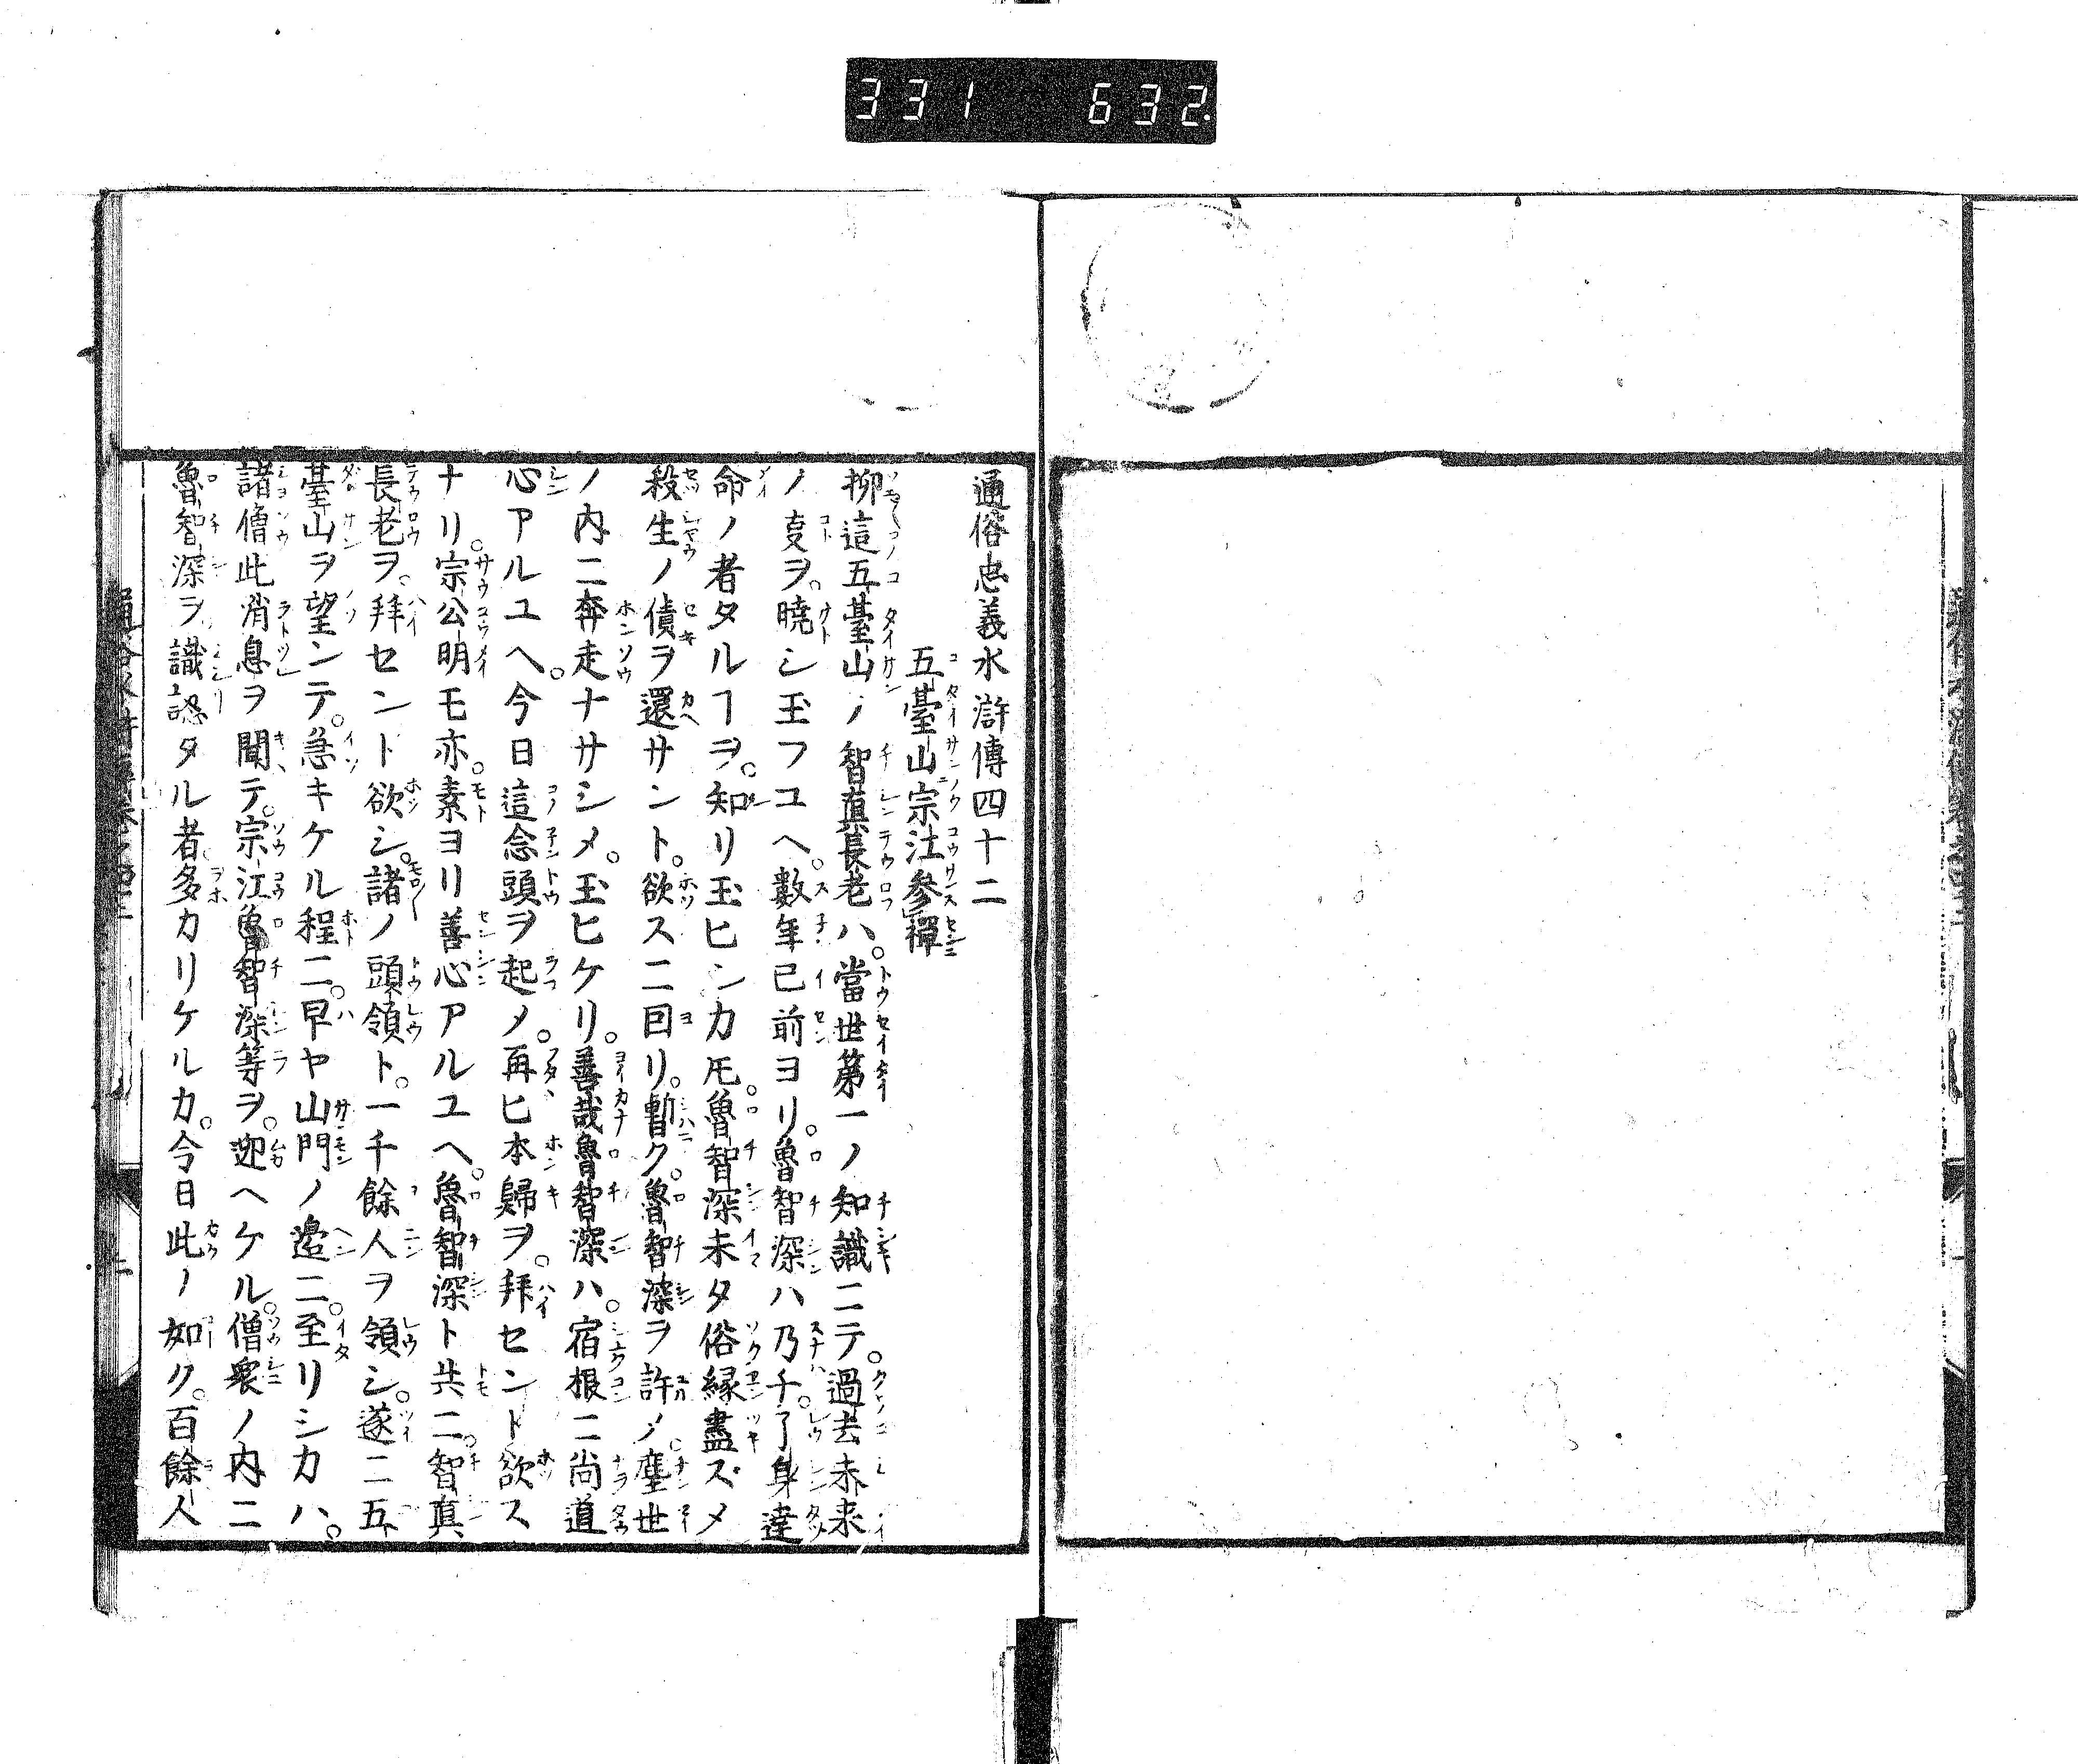 331 632
通俗忠義水滸傳四十二
五臺山宗江參禪
抑這五臺山ノ智真長老ハ。當世第一ノ知識ニテ。過去未来
ノ㕝ヲ。曉シ玉フユヘ。數年已前ヨリ。魯智深ハ乃チ。了身達
命ノ者タルヿヲ。知リ玉ヒシカ𪜈。魯智深未タ俗縁盡ズメ
殺生ノ債ヲ還サント。欲スニ回リ。暫ク。魯智深ヲ許ノ。塵世
ノ内ニ奔走ナサシメ。玉ヒケリ。善哉魯智深ハ。宿根ニ尚道
心アルユヘ。今日這念頭ヲ起ノ。再ヒ本歸ヲ。拜セント欲ス
ナリ。宗公明モ亦。素ヨリ善心アルユヘ。魯智深ト共ニ。智真
長老ヲ。拜セント欲シ。諸ノ頭領ト。一千餘人ヲ領シ。遂ニ五
臺山ヲ望ンテ。急キケル程ニ。早ヤ山門ノ邉ニ。至リシカハ。
諸僧此消息ヲ聞テ。宗江魯智深等ヲ。迎ヘケル。僧衆ノ内ニ
魯智深ヲ識認タル者多カリケルカ。今日此ノ如ク。百餘人